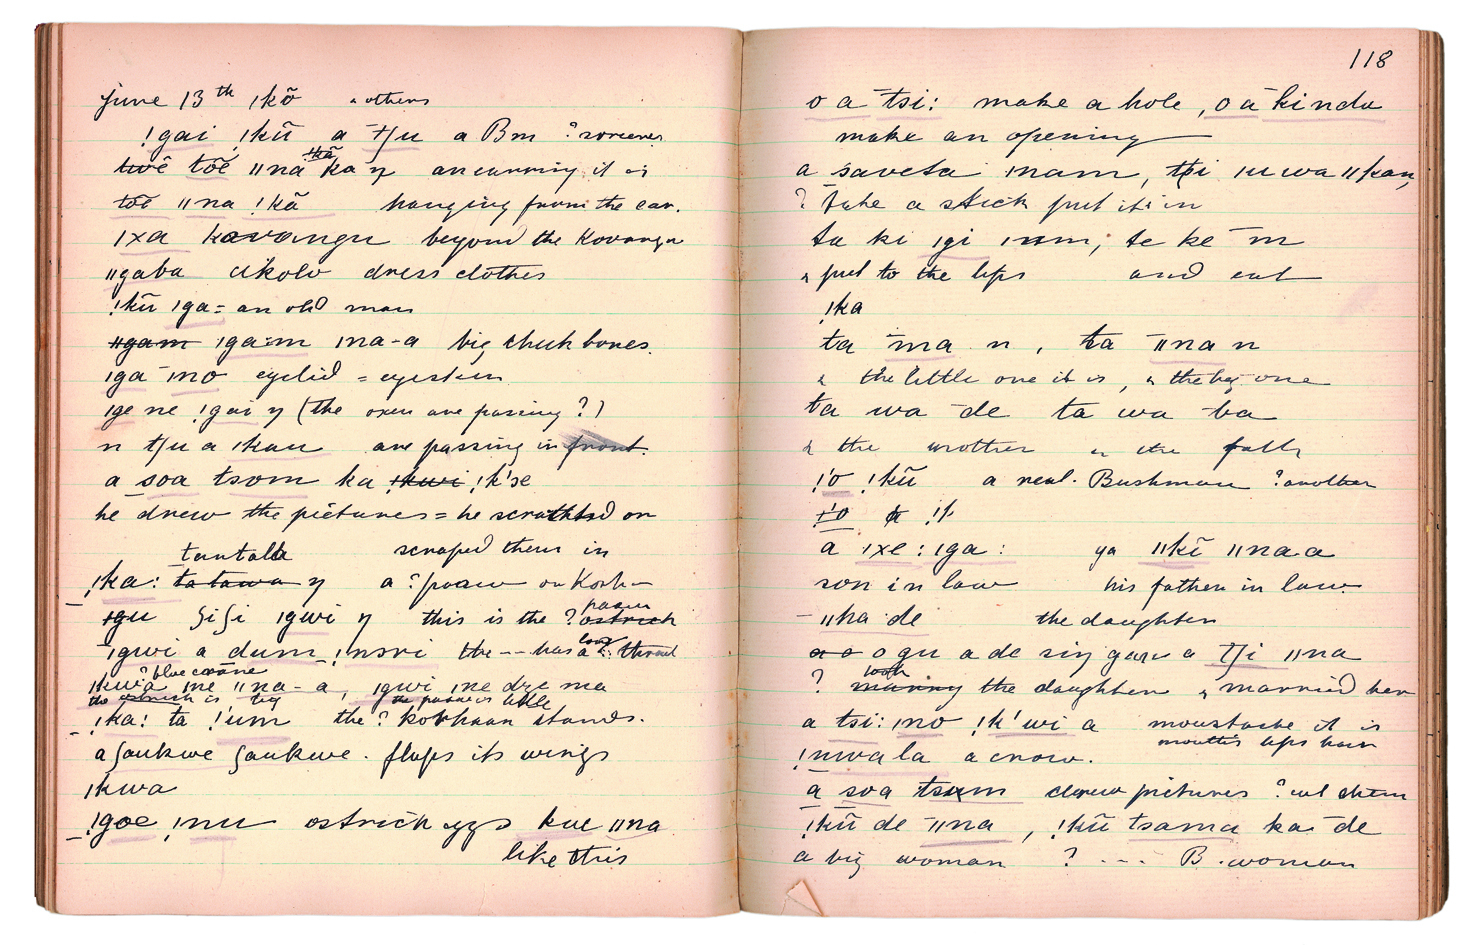 June 13th ǀkõ & others
ǃgai ǃkũ a tʃu a Bm ? sorcerer
toẽ ǁna ǃkã ka ŋ an earring it is
toẽ ǁna ǃkã hanging from the ear.
ǀxa kavangu beyond the Kovangu
ǁgaba cikolo dress clothes
ǃkũ ǀga = an old man
ǀga:m ǀna-a big cheek bones.
ǀga ̄mo eyelid = eyeskin
ǀge ne ǃgai ŋ (the oxen are passing ?)
n tʃu a ǀkau are passing in front.
a soa tsom ka ǃk'se
he drew the pictures = he scratched on
tantala scraped them in
ǃka: ŋ a ? paauw or Korh-
ʃiʃi ǀgwi ŋ this is the ? paauw
ǀgwi a dum ǃnsri the -- has a long
blue crane
ǀkwa ǀne ǁna-a, ǀgwi ǀne dze ma
the is big the paauw is little
ǃka: ta ǃ'um the ? korhaan stands.
a ʃaukwe ʃaukwe. flaps its wings
ǀkwa
ǃgoe ǃnu ostrich eggs kue ǁna
like this
118
o a tsi: make a hole, o a kindu
make an opening
a saveta ǀnam, tsi ǀuwa ǁkan,
? take a stick put it in
ta ki ǀgi ǀnm, te ke m̄
& put to the lips and eat
ǃka
ta ma n, ta ǁna n
& the little one it is, & the big one
ta wa de ta wa ba
& the mother & the fath
ǃo ǃkũ a real Bushman ? another
a ǀxe: ǀga: ya ǁkĩ ǁna.a
son in law his father in law.
- ǁha de the daughter
o gu a de siŋ garu a tʃi ǁna
took
? the daughter & married her
a tsi: ǀno ǃk'wi a moustache it is
mouth's lips hair
ǃnwa la a crow.
a soa tsum drew pictures ? cut them
ǃkũ de ǁna, ǃkũ tsama ka de
a big woman ? --- B. woman